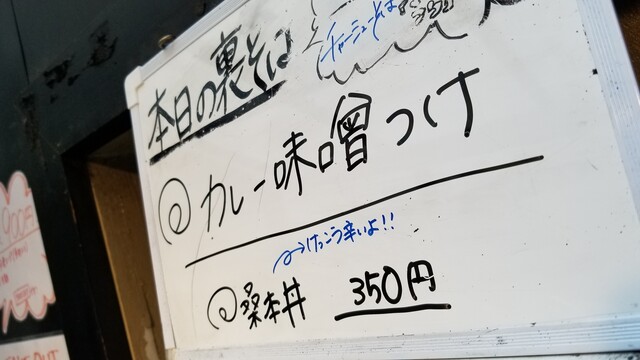 本日の裏そば
チャーシューそば
カレー味噌つけ
けっこう辛いよ!!
桑本丼 350円
900円